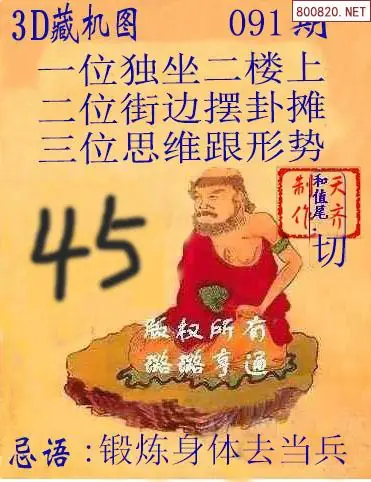 800820.NET
3D藏机图 091期
一位独坐二楼上
二位街边摆卦摊
三位思维跟形势
天齐
制作
和值尾:切
45
版权所有
璐璐亨通
忌语:锻炼身体去当兵